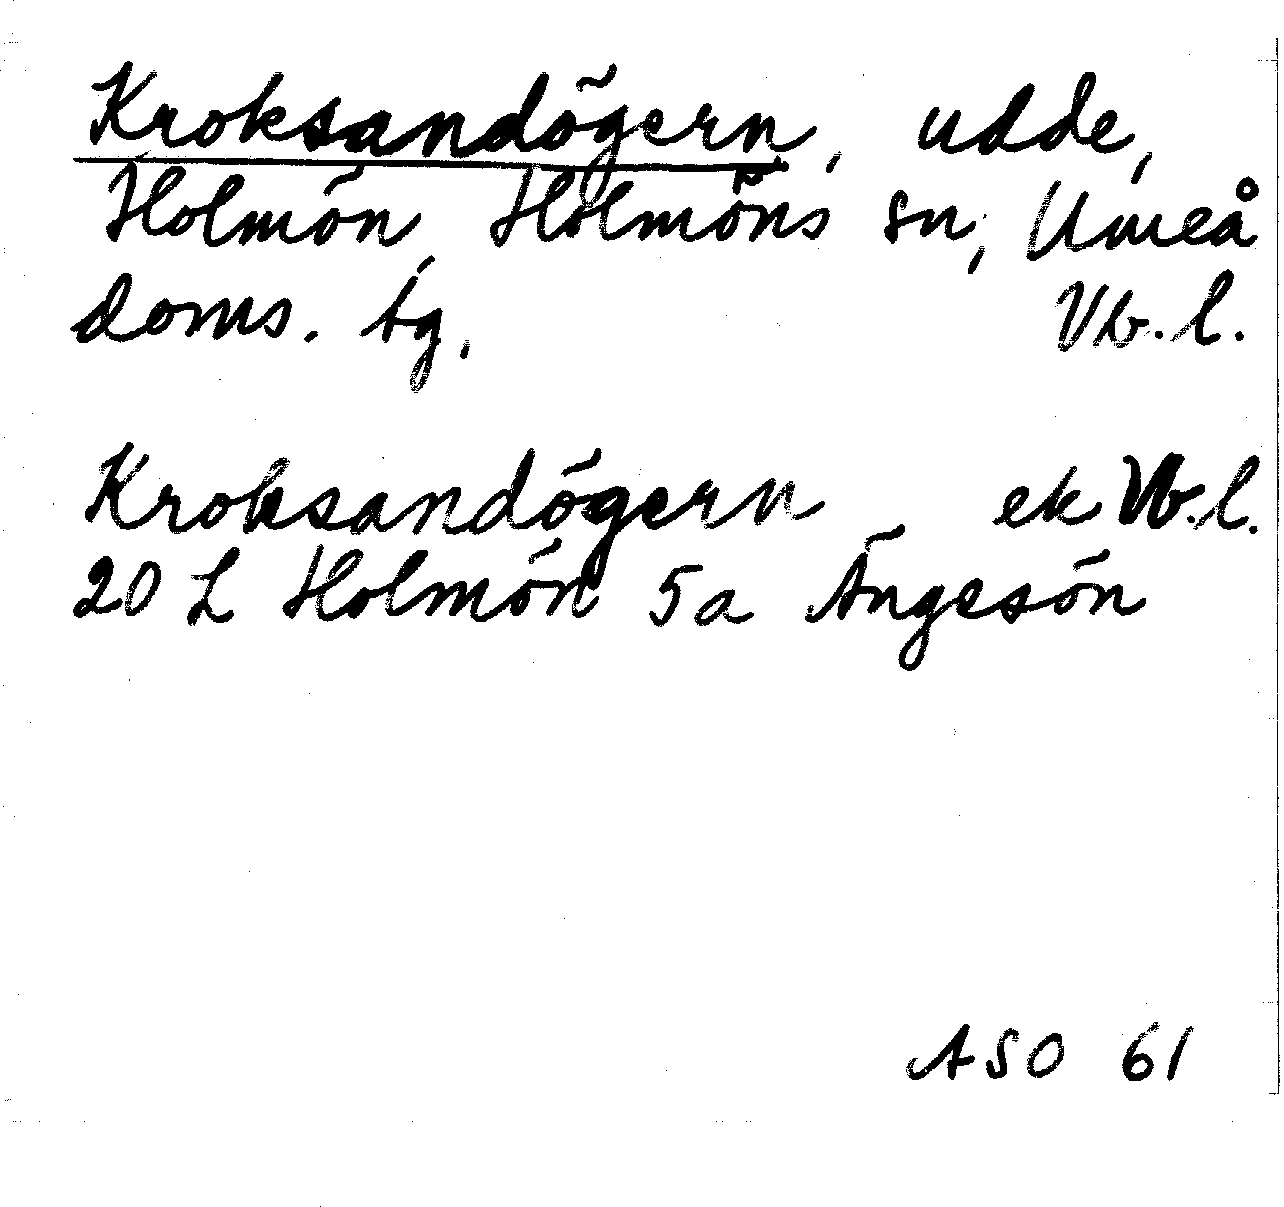 Kroksandögern, udde,
Holmön, Holmöns sn, Umeå
doms. tg. Vb. l.
Kroksandögern ek Vb. l.
20 L Holmön 5a Ängesön
ASO 61